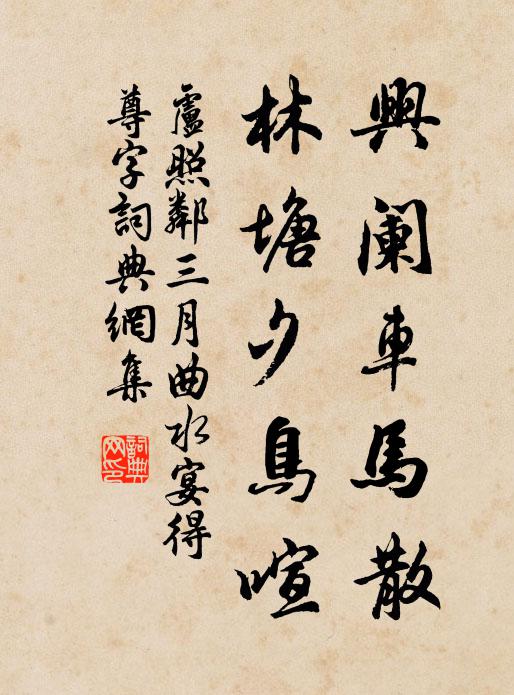 興闌車馬散
林塘夕鳥喧
盧照鄰三月曲水宴得
尊字詞典網集
詞典网印